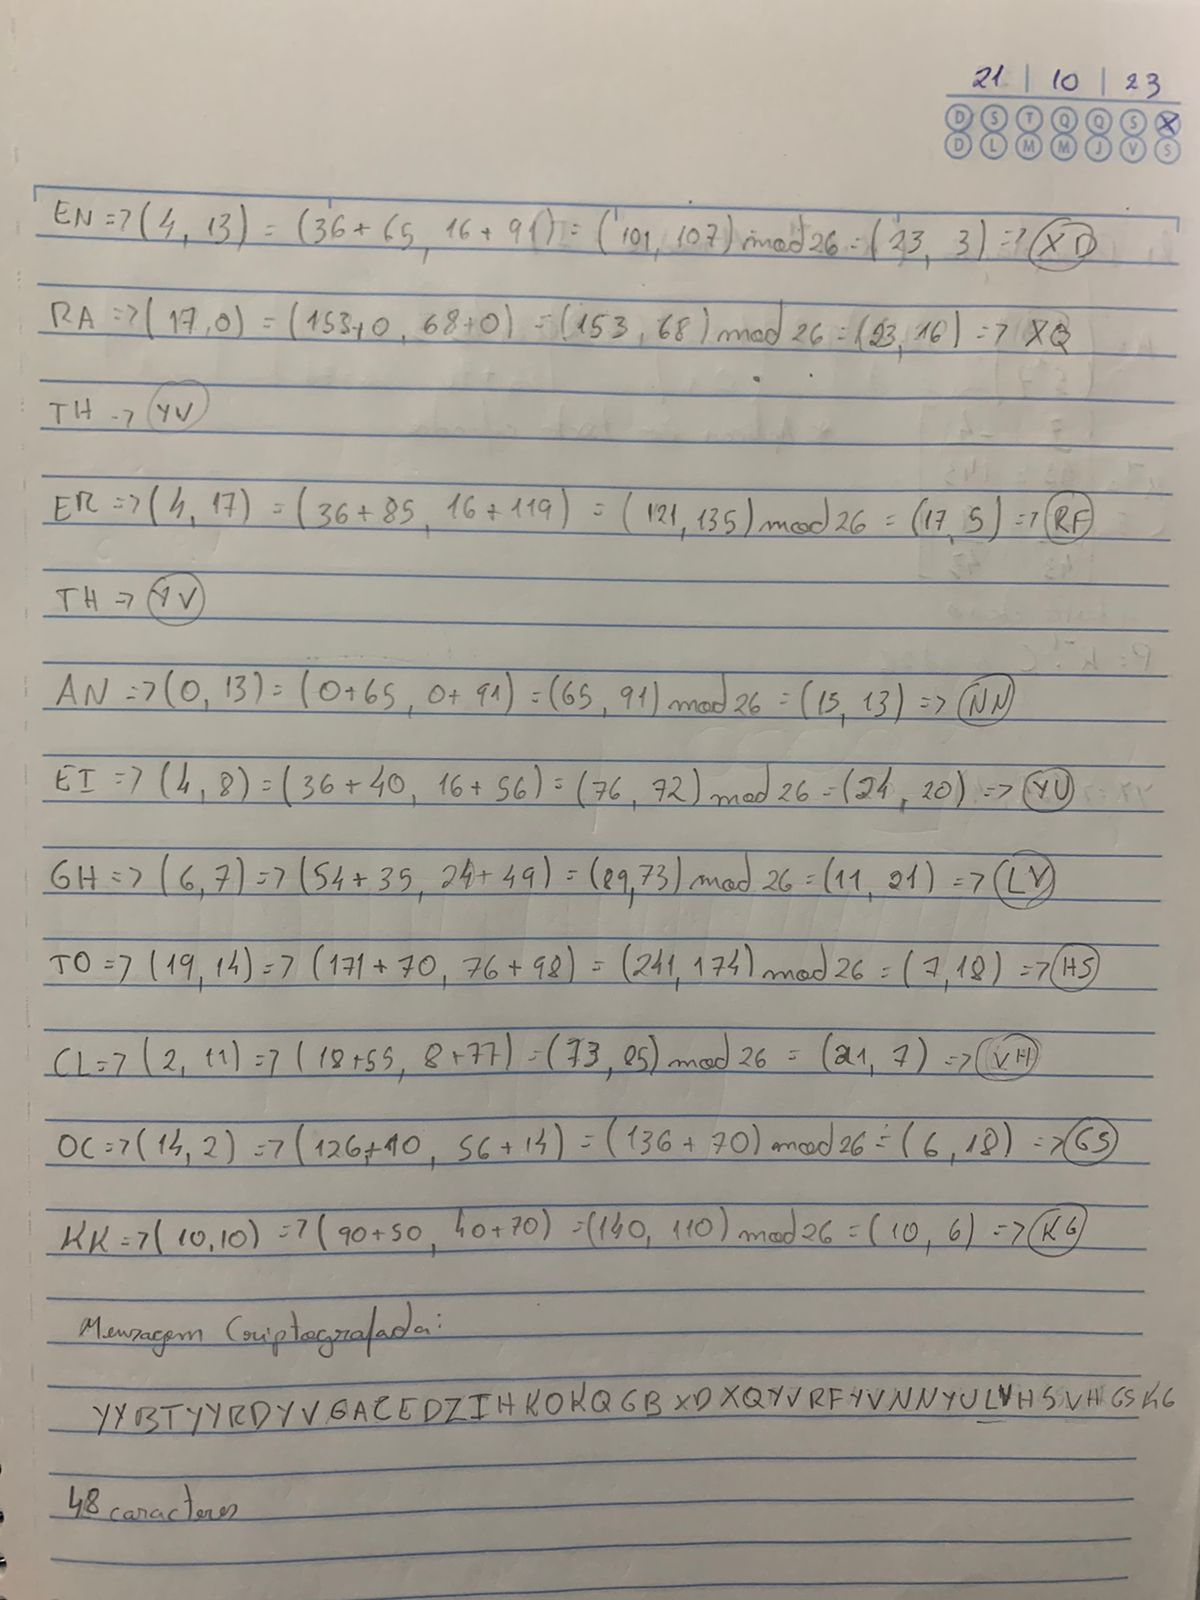 21 | 10 | 23
D S T Q Q S X
D L M M J V S
EN => (4, 13) = (36+65, 16+91) = (101, 107) mod 26 = (23, 3) => XD
RA => (17,0) = (153+0, 68+0) = (153, 68) mod 26 = (23, 16) => XQ
TH -> YV
ER => (4, 17) = (36+85, 16+119) = (121, 135) mod 26 = (17, 5) => RF
TH -> YV
AN => (0, 13) = (0+65, 0+91) = (65, 91) mod 26 = (15, 13) => NN
EI => (4, 8) = (36+40, 16+56) = (76, 72) mod 26 = (24, 20) => YU
GH => (6,7) => (54+35, 24+49) = (89,73) mod 26 = (11, 21) => LV
TO => (19, 14) => (171+70, 76+98) = (241, 174) mod 26 = (7,18) => HS
CL => (2, 11) => (18+55, 8+77) = (73, 85) mod 26 = (21, 7) => VH
OC => (14, 2) => (126+10, 56+14) = (136+70) mod 26 = (6, 18) => GS
KK => (10,10) => (90+50, 40+70) = (140, 110) mod 26 = (10, 6) => KG
Mensagem Criptografada:
YYBTYYRDYVGACEDZIHKOKQGBXDXQYVRFYVNNYULVHSVHGSKG
48 caracteres